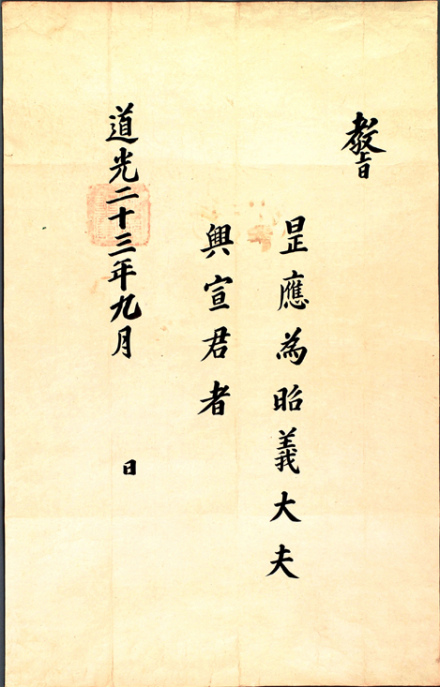 教旨
昰應為昭義大夫
興宣君者
道光二十三年九月 日